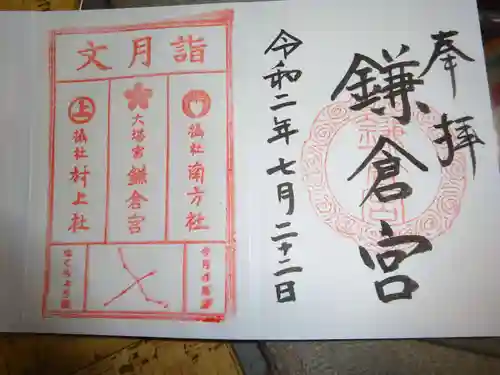 奉拝
鎌倉宮
令和二年七月二十二日
文月詣
摂社 南方社
大塔宮 鎌倉宮
上
摂社 村上社
はくちょう座